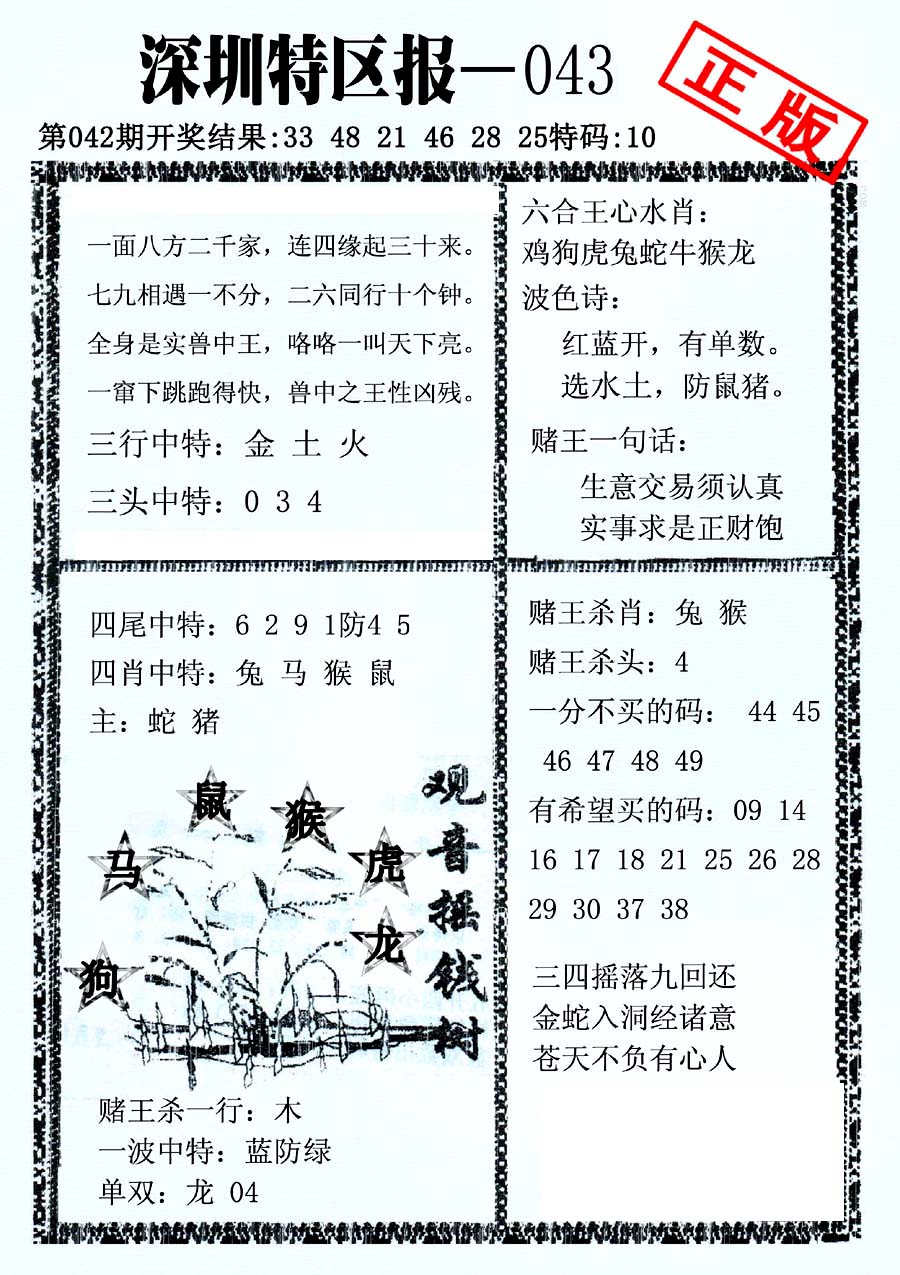 深圳特区报—043
正版
第042期开奖结果:33 48 21 46 28 25特码:10
一面八方二千家，连四缘起三十来。
七九相遇一不分，二六同行十个钟。
全身是实兽中王，咯咯一叫天下亮。
一窜下跳跑得快，兽中之王性凶残。
三行中特：金 土 火
三头中特：0 3 4
六合王心水肖：
鸡狗虎兔蛇牛猴龙
波色诗：
红蓝开，有单数。
选水土，防鼠猪。
赌王一句话：
生意交易须认真
实事求是正财饱
四尾中特：6 2 9 1防4 5
四肖中特：兔 马 猴 鼠
主：蛇 猪
鼠
猴
马
虎
龙
狗
观音摇钱树
赌王杀一行：木
一波中特：蓝防绿
单双：龙 04
赌王杀肖：兔 猴
赌王杀头：4
一分不买的码： 44 45
46 47 48 49
有希望买的码：09 14
16 17 18 21 25 26 28
29 30 37 38
三四摇落九回还
金蛇入洞经诸意
苍天不负有心人